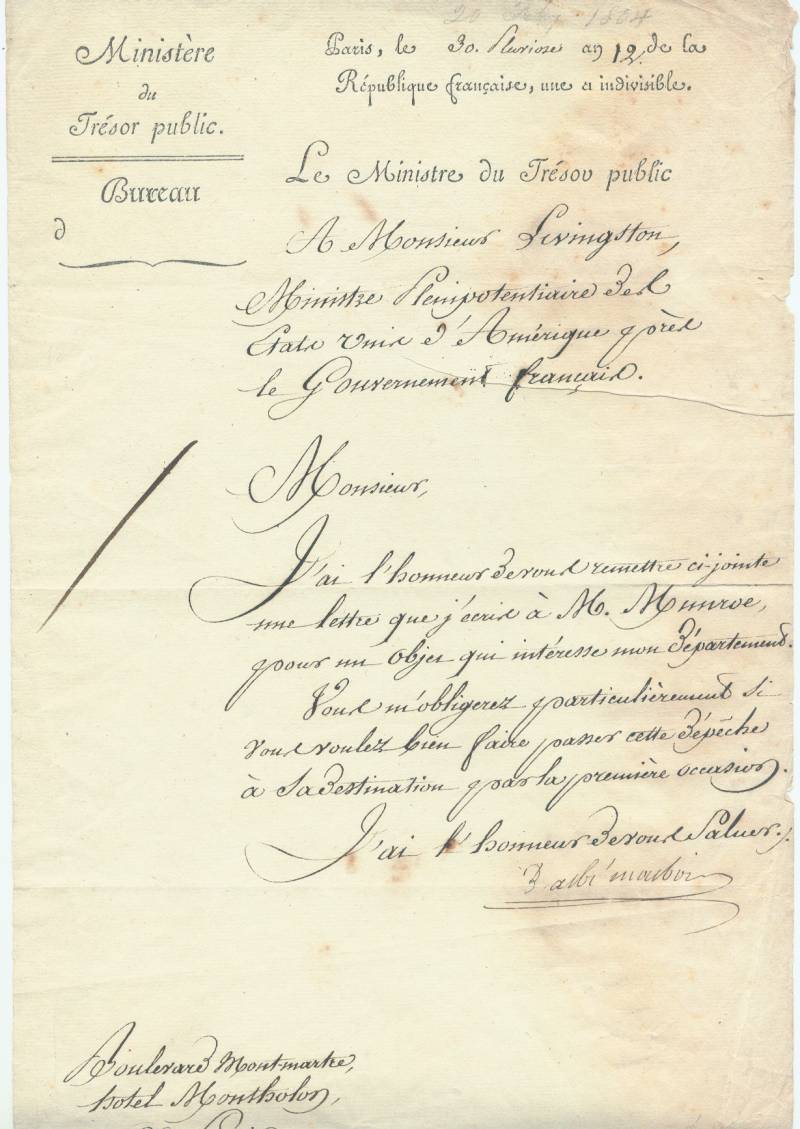 20 1804
Ministère
du
Trésor public.
Bureau
d
Paris, le 30. Pluviose an 12. de la
République française, une et indivisible.
Le Ministre du Trésor public
A Monsieur Livingston,
Ministre Plenipotentiaire des
Etats unis d'Amérique près
le Gouvernement français.
Monsieur,
J'ai l'honneur de vous remettre ci-jointe
une lettre que j'écris à M. Munroe,
pour un objet qui intéresse mon département.
Vous m'obligerez particulièrement si
vous voulez bien faire passer cette dépêche
à sa destination par la première occasion.
J'ai l'honneur de vous saluer.
Barbé marbois
Boulevard Montmartre,
hotel Montholon,